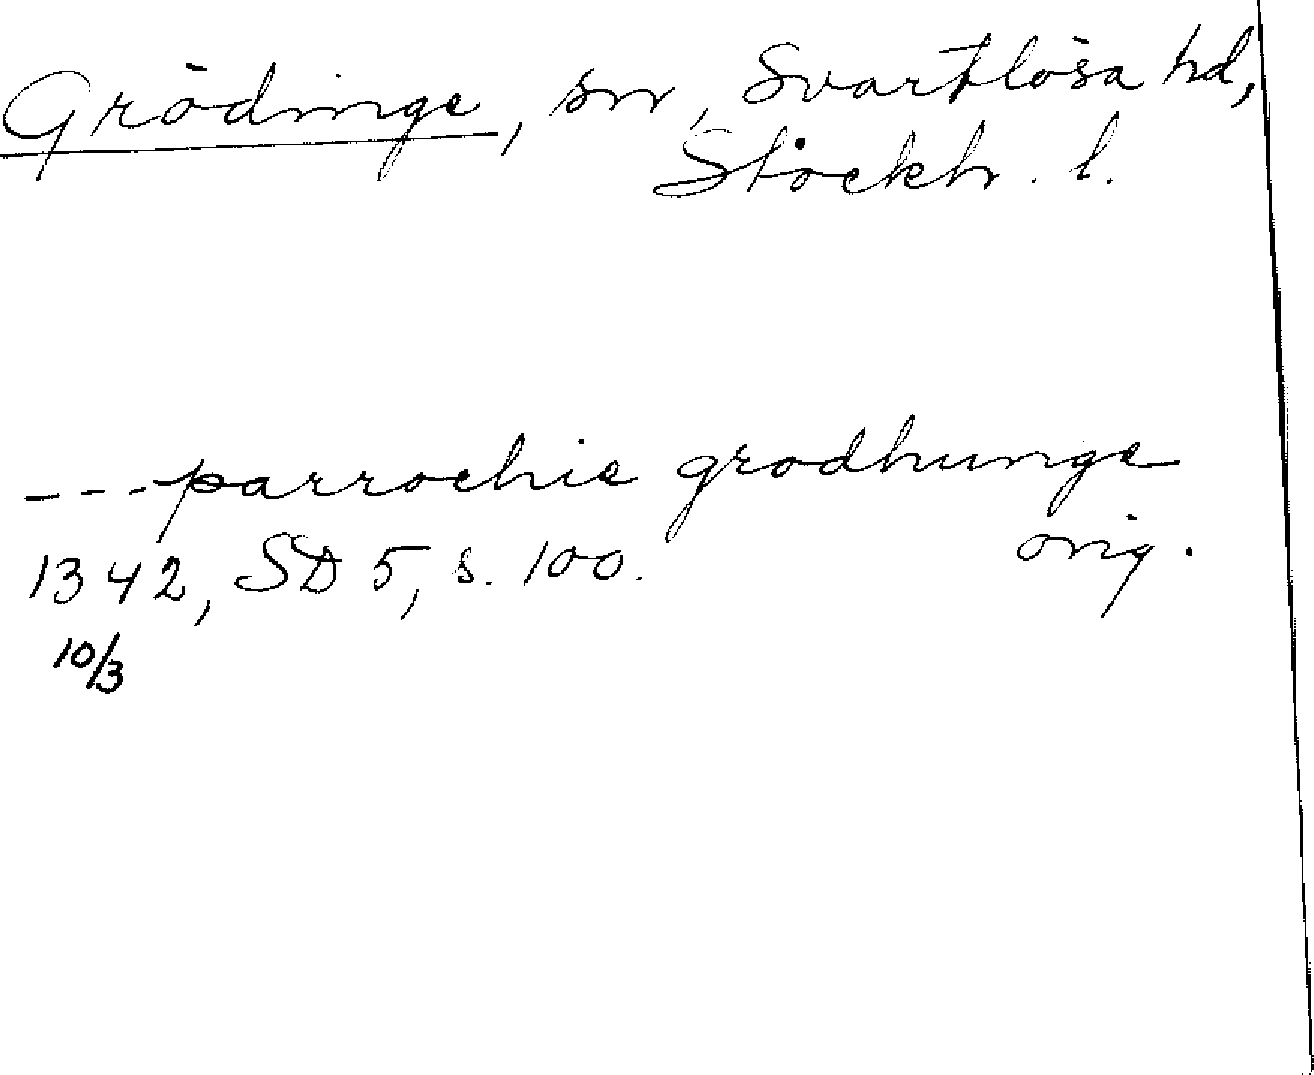 Grödinge, sn, Svartlösa hd,
Stockh. l.
---parrochie grodhunge
1342, SD 5, s. 100. orig.
10/3